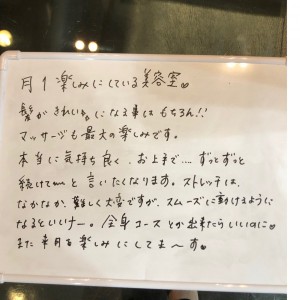 月1楽しみにしている美容室♥
髪がきれいに。になる事はもちろん!!
マッサージも最大の楽しみです。
本当に気持ち良く、お上手で....ずっとずっと
続けてーーと言いたくなります。ストレッチは、
なかなか、難しく大変ですが、スムーズに動けるように
なるといいナー。全身コースとか出来たらいいのに♥
また来月を楽しみにしてま〜す。